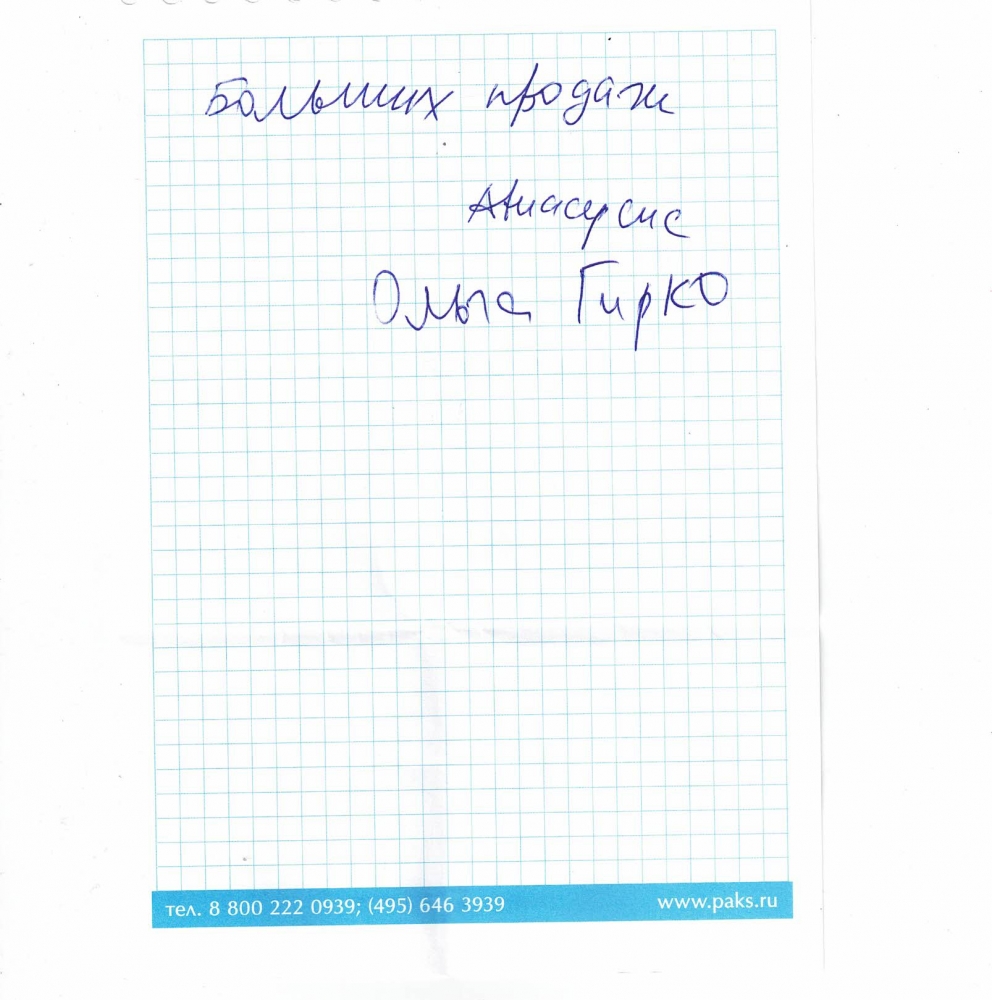 Больших продаж
Ольга Гирко
тел. 8 800 222 0939; (495) 646 3939
www.paks.ru